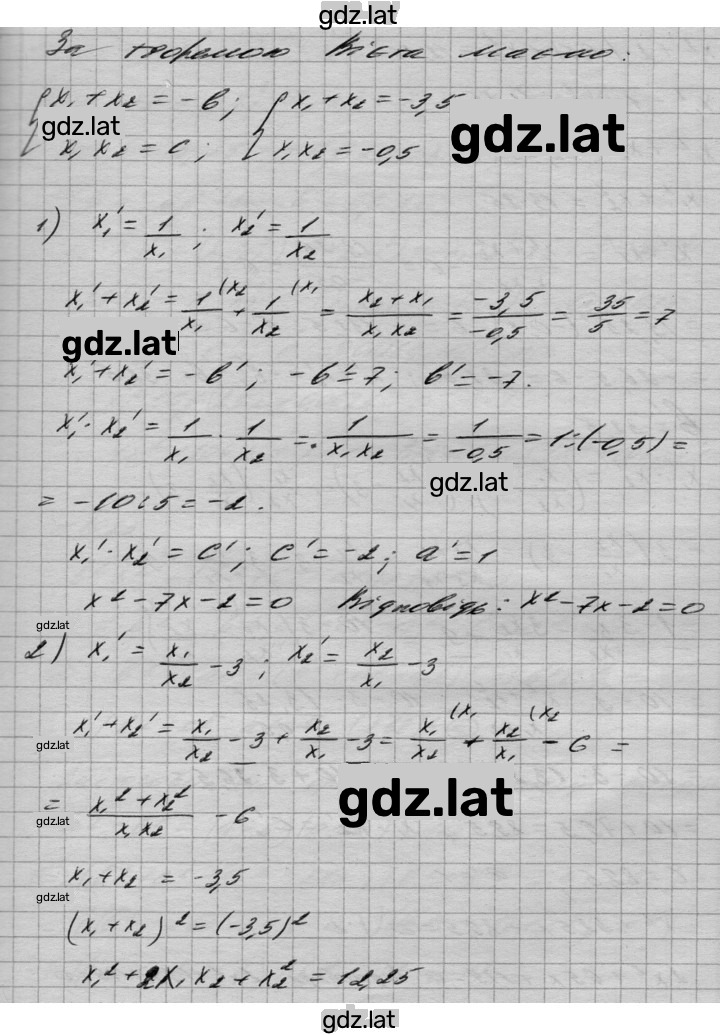 gdz.lat
За теоремою Вієта маємо:
{ x₁ + x₂ = -b; { x₁ + x₂ = -3,5
gdz.lat gdz.lat
x₁ x₂ = c; x₁x₂ = -0,5
1) x₁' = 1/x₁; x₂' = 1/x₂
x₁' + x₂' = 1/x₁ (x₂ + 1/x₂ (x₁ = (x₂ + x₁)/(x₁ x₂) = -3,5/-0,5 = 35/5 = 7
gdz.lat
x₁' + x₂' = -b'; -b' = 7; b' = -7.
x₁' · x₂' = 1/x₁ · 1/x₂ = 1/(x₁ x₂) = 1/-0,5 = 1:(-0,5) =
gdz.lat
= -10:5 = -2.
x₁' · x₂' = c'; c' = -2; a' = 1
x² - 7x - 2 = 0 Відповідь: x² - 7x - 2 = 0
gdz.lat
2) x₁' = x₁/x₂ - 3; x₂' = x₂/x₁ - 3
x₁' + x₂' = x₁/x₂ - 3 + x₂/x₁ - 3 = x₁/x₂ (x₁ + x₂/x₁ (x₂ - 6 =
gdz.lat
gdz.lat
= (x₁² + x₂²)/(x₁ x₂) - 6
gdz.lat
x₁ + x₂ = -3,5
gdz.lat
(x₁ + x₂)² = (-3,5)²
x₁² + 2x₁ x₂ + x₂² = 12,25
gdz.lat